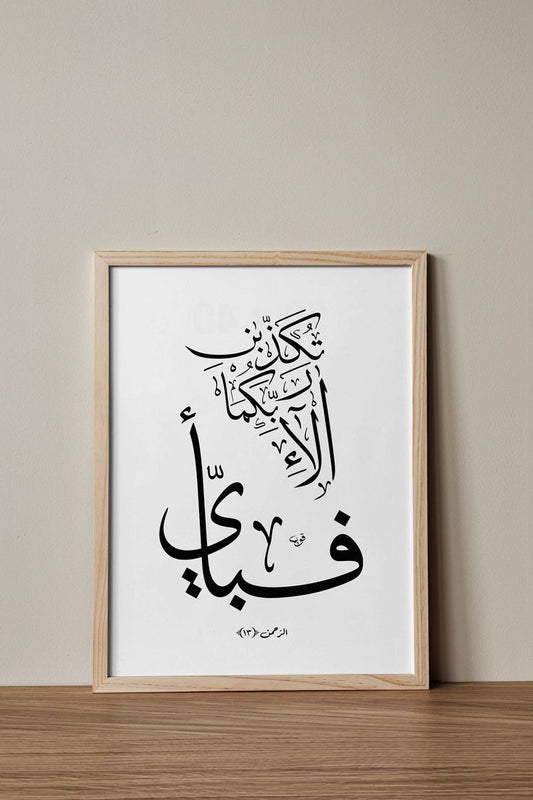 فَبِأَيِّ
ءَالَآءِ
رَبِّكُمَا
تُكَذِّبَنِ
الرحمن ﴿١٣﴾